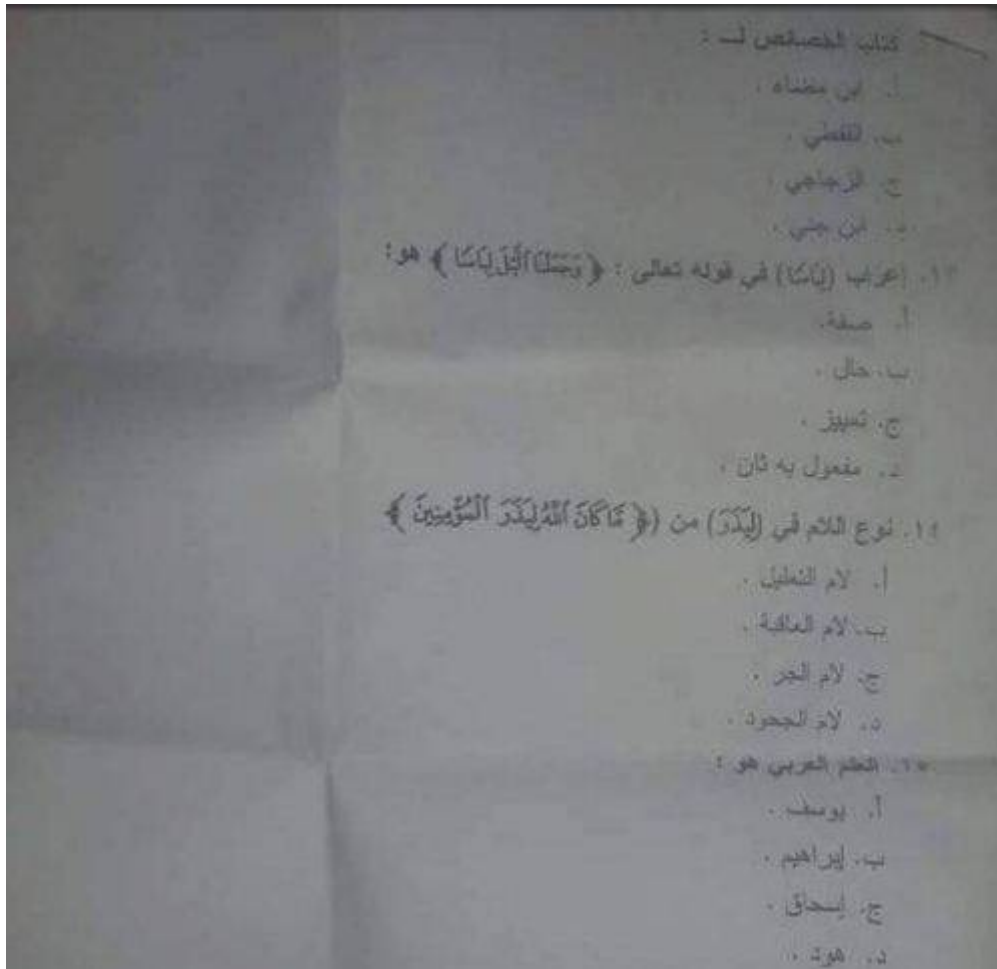 كتاب الخصائص لـ :
أ. ابن مضاء .
ب. القفطي .
ج. الزجاجي .
د. ابن جني .
١٣. إعراب (لِبَاسًا) في قوله تعالى : ﴿ وَجَعَلْنَا ٱلَّيْلَ لِبَاسًا ﴾ هو:
أ. صفة.
ب. حال .
ج. تمييز .
د. مفعول به ثان .
١٤. نوع اللام في (لِيَذَرَ) من (﴿ مَّا كَانَ ٱللَّهُ لِيَذَرَ ٱلْمُؤْمِنِينَ ﴾
أ. لام التعليل .
ب. لام العاقبة .
ج. لام الجر .
د. لام الجحود .
١٥. العلم العربي هو :
أ. يوسف .
ب. إبراهيم .
ج. إسحاق .
د. هود .